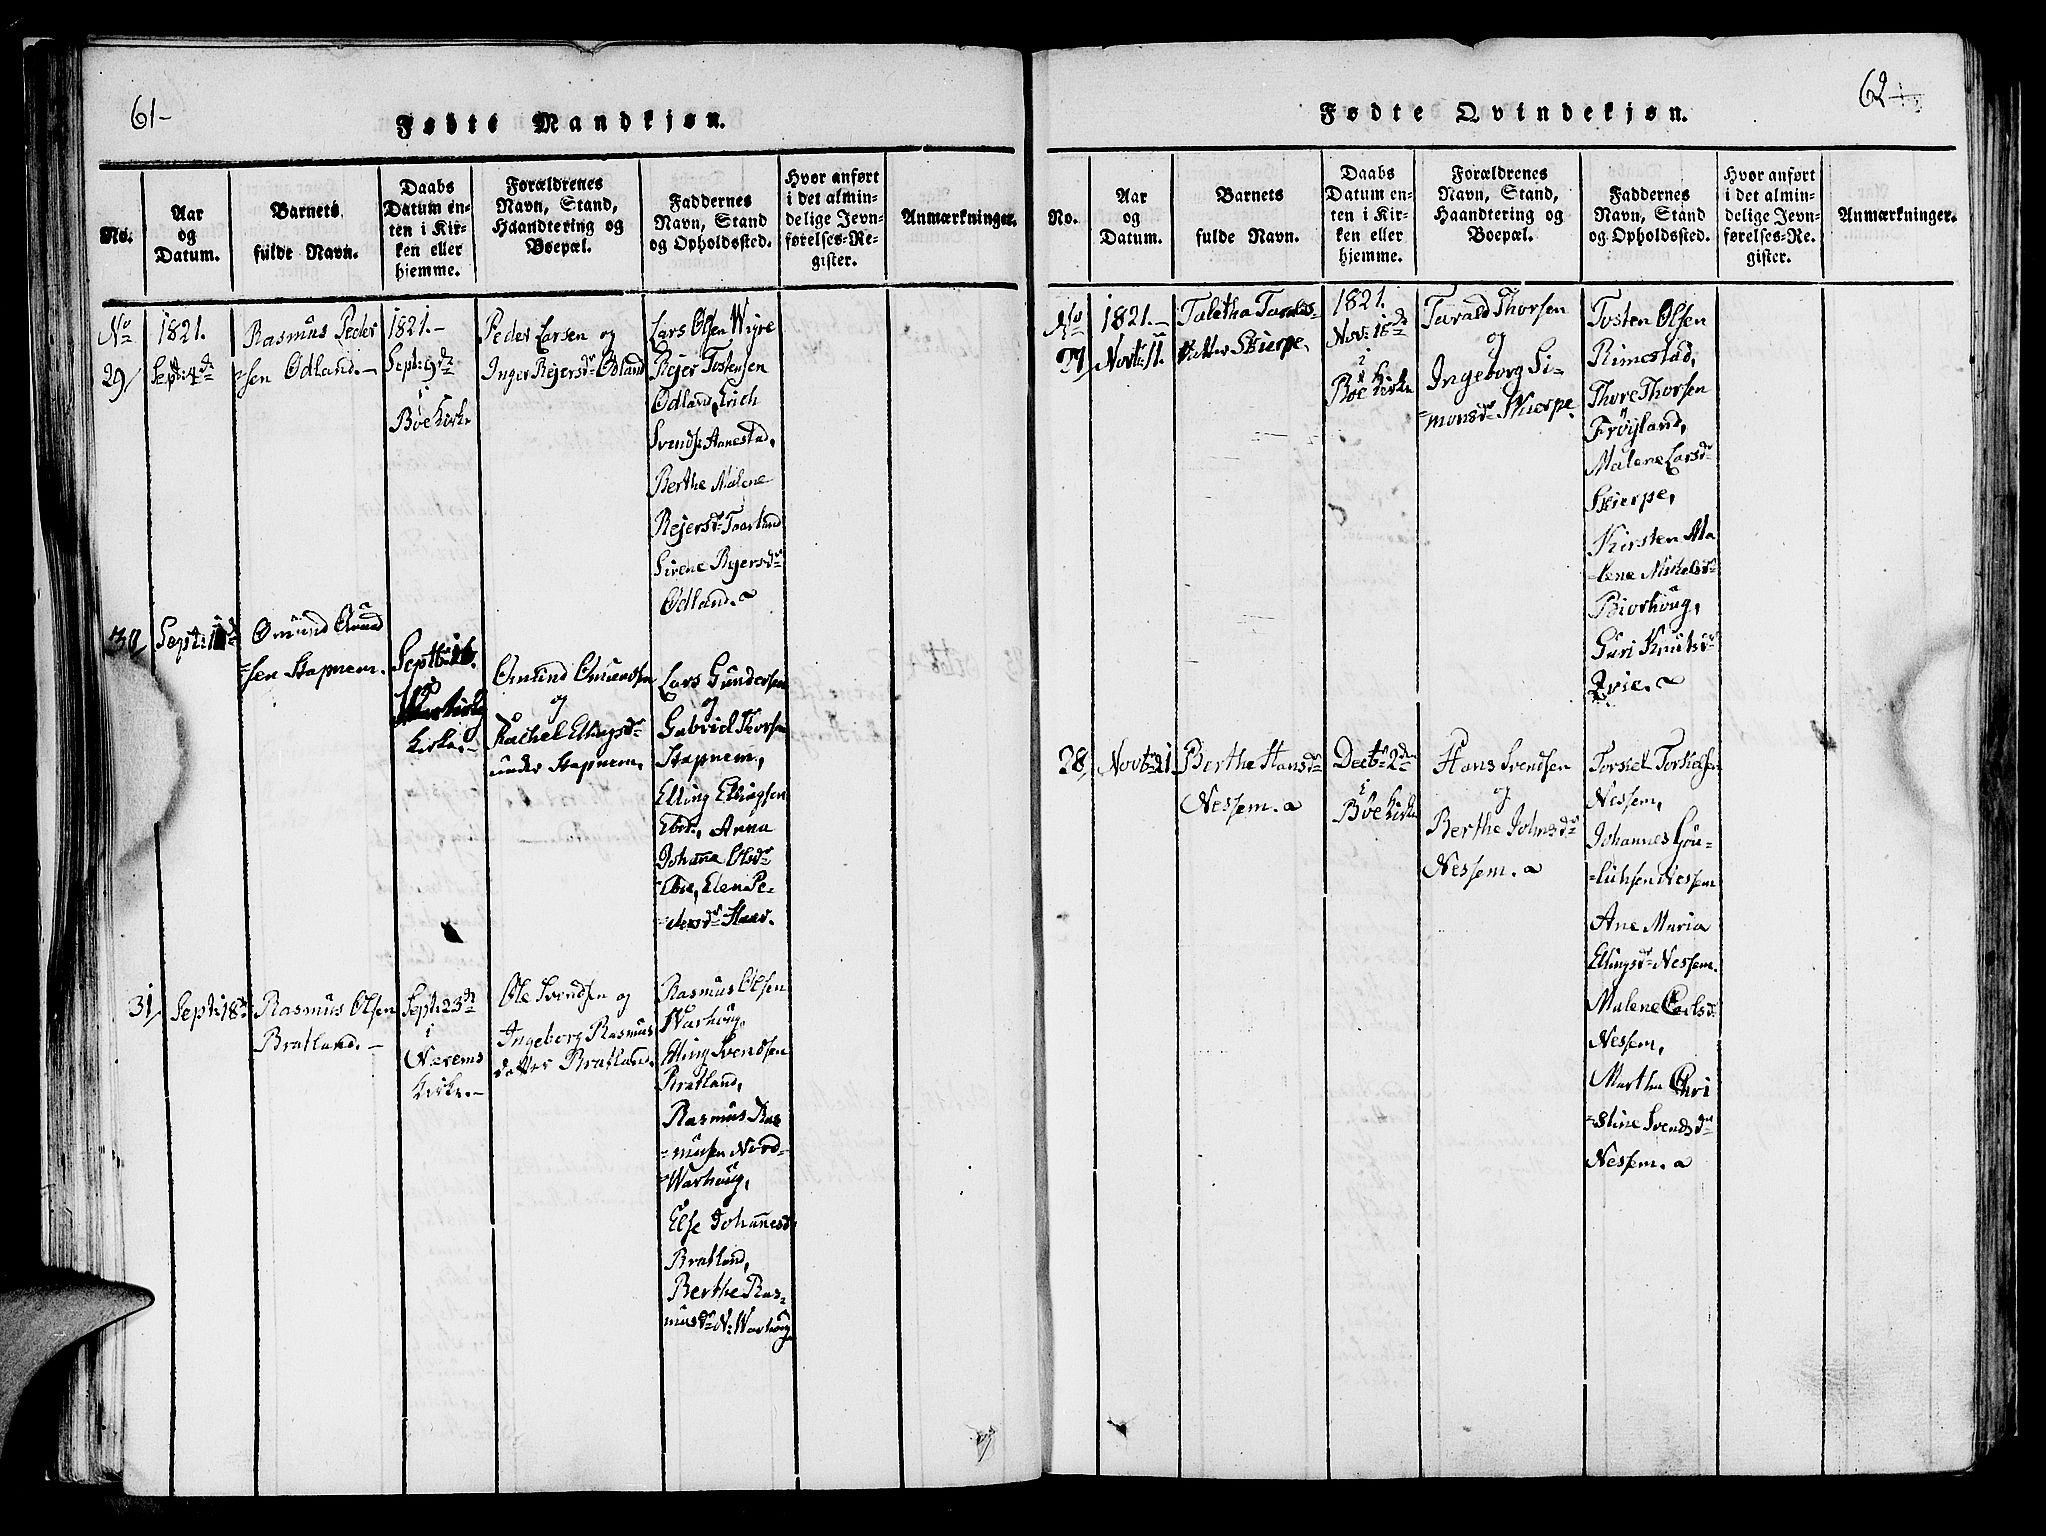 61-
Fødte Mandkjøn.
No.
Aar
og
Datum.
Barnets
fulde Navn.
Daabs
Datum en-
ten i Kir-
ken eller
hjemme.
Forældrenes
Navn, Stand,
Haandtering og
Boepæl.
Faddernes
Navn, Stand
og Opholdssted.
Hvor anført
i det almin-
delige Jevn-
førelses-Re-
gister.
Anmærkninger.
No
29/
1821.
Septb: 4de
Rasmus Peder
=sen Ødland.-
1821.-
Sept: 9de
i
Bøe Kirke
Peder Larsen og
Inger Rejersdr Ødland
Lars Olsen Wigre
Rejer Tostensen
Ødland, Erich
Svends: Aanestad,
Berthe Malene
Rejersdr Taarland
Sirene Rejersdr
Ødland.
30/
Septr: 11
Omund Omund
=sen Stapnem.
Septb: 16.
Kirke.-
Omund Omundsen
og
Rachel Ellingsdr
under Stapnem,
Lars Gundersen
og
Gabriel Thorsen
Stapnem,
Elling Ellingsen
Ebd:, Anna
Johanna Olsdr
Ebie, Elen Pe-
=dersdr Haar.
31/
Sept: 18de
Rasmus Olsen
Bratland.-
Sept: 23de
i
Nærems
Kirke.-
Ole Svendsen og
Ingeborg Rasmus
datter Bratland.
Rasmus Olsen
Warhoug,
Elling Svendsen
Bratland,
Rasmus Ras
=musen Nord-
=Warhoug,
Else Johannesd
Bratland,
Berthe Ras-
musdr N: Warhoug
62
Fødte Qvindekjøn.
No.
Aar
og
Datum.
Barnets
fulde Navn.
Daabs
Datum en-
ten i Kir-
ken eller
hjemme.
Forældrenes
Navn, Stand,
Haandtering og
Boepæl.
Faddernes
Navn, Stand
og Opholdssted.
Hvor anført
i det almin-
delige Jevn-
førelses-Re-
gister.
Anmærkninger.
No
27
1821.-
Novt: 11.
Taletha Taralds
datter Skierpe,
1821.
Nov: 18de
i
Bøe Kirke
Tarald Thorsen
og
Ingeborg Si-
=monsdr Skierpe.
Tosten Olsen
Rimestad,
Thore Thorsen
Frøyland,
Malene Larsdr
Skierpe,
Kirsten Ma
=lene Mikelsdr
Biorhoug,
Guri Knutsdr
28/
Novbr: 21
Berthe Hansdr
Nessem.
Decb: 2den
i
Bøe Kirke
Hans Svendsen
og
Berthe Johnsdr
Nessem.
Torkiel Torkielsen
Nessem,
Johannes Gou-
=tuhsen Nessem
Ane Maria
Ellingsdr Nessem.
Malene Carlsd:
Nessem,
Martha Chri
=stine Svendsdr
Nessem.